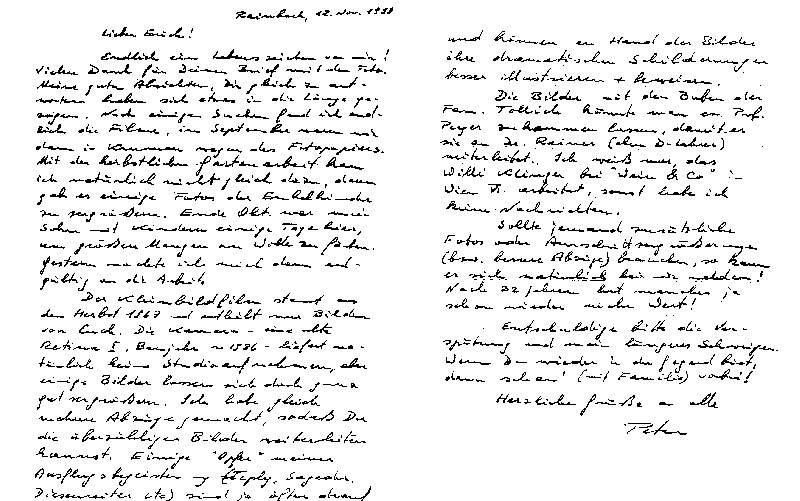 Rainbach, 12. Nov. 1990
Lieber Erich!
Endlich ein Lebenszeichen von mir!
Vielen Dank für Deinen Brief mit den Fotos.
Meine guten Absichten, Dir gleich zu ant-
worten haben sich etwas in die Länge ge-
zogen. Nach einigem Suchen fand ich end-
lich die Filme, im September waren wir
dann in wegen des Fotopapiers.
Mit der herbstlichen Gartenarbeit kam
ich natürlich nicht gleich dazu, dann
gab es einige Fotos der Enkelkinder
zu vergrößern. Ende Okt. war mein
Sohn mit Kindern einige Tage hier,
um größere Mengen an Wolle zu färben.
Gestern machte ich mich dann end-
gültig an die Arbeit.
Der Kleinbildfilm stammt aus
dem Herbst 1968 und enthält nur Bilder
von Euch. Die Kamera - eine alte
Retina I, Baujahr ~ 1936 - liefert na-
türlich keine Studioaufnahmen, aber
einige Bilder lassen sich doch ganz
gut vergrößern. Ich habe gleich
mehrere Abzüge gemacht, sodaß Du
die überzähligen Bilder weiterleiten
kannst. Einige "Opfer" meiner
Ausflugsbegeisterung
etc) sind ja öfter drauf
und können an Hand der Bilder
ihre dramatischen Schilderungen
besser illustrieren + beweisen.
Die Bilder mit den Buben der
Fam. könnte man an Prof.
Peyer zukommen lassen, damit er
sie an Dr. Rainer (ehm D-Lehrer)
weiterleitet. Ich weiß nur, daß
Willi Klinger bei & Co" in
Wien arbeitet, sonst habe ich
keine Nachrichten.
Sollte jemand zusätzliche
Fotos oder Ausschnittvergrößerungen
(bzw. bessere Abzüge) brauchen, so kann
er sich natürlich bei mir melden!
Nach 22 Jahren hat manches ja
schon wieder mehr Wert!
Entschuldige bitte die Ver-
spätung und mein längeres Schweigen.
Wenn Du wieder in der Gegend bist,
dann schau' (mit Familie) vorbei!
Herzliche Grüße an alle
Peter